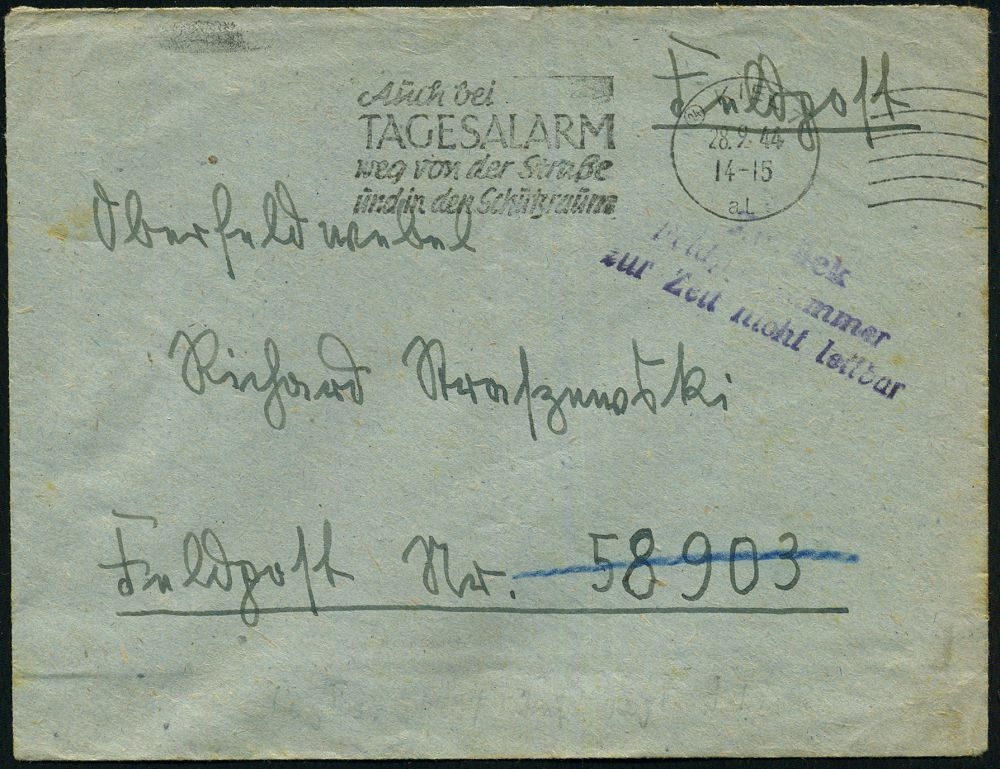 Feldpost
Auch bei
TAGESALARM
weg von der Straße
und in den Schützraum
KIEL
(24)
28.9.44
14-15
a.L.
Oberfeldwebel
Zurück
Feldpostnummer
zur Zeit nicht leitbar
Richard Straszewski
Feldpost Nr. 58903